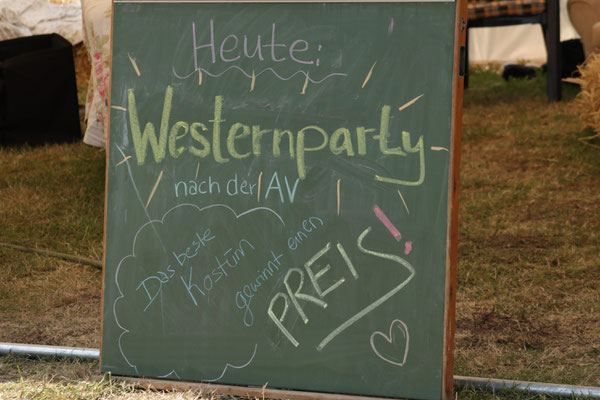 Heute:
Westernparty
nach der AV
Das beste
Kostüm
gewinnt einen
PREIS!